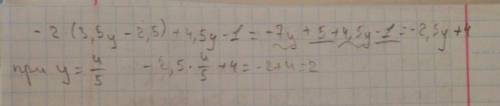 - 2 (3,5y - 2,5) + 4,5y - 1 = -7y + 5 + 4,5y - 1 = -2,5y + 4
при y = 4/5 -2,5 · 4/5 + 4 = -2 + 4 = 2